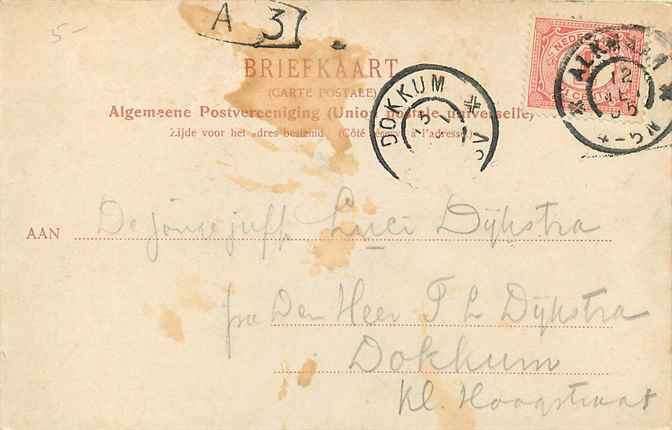 5-
A 3
BRIEFKAART
(CARTE POSTALE)
Algemeene Postvereeniging (Union postale universelle)
Zijde voor het adres bestemd (Côté réservé à l'adresse)
DOKKUM
ALKMAAR
12
4-5N
AAN De jonge juff Luci Dijkstra
Den Heer T L Dijkstra
Dokkum
Kl. Hoogstraat